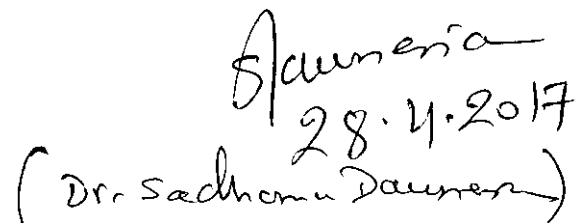 SDauneria
28.4.2017
(Dr. Sadhana Dauneria)